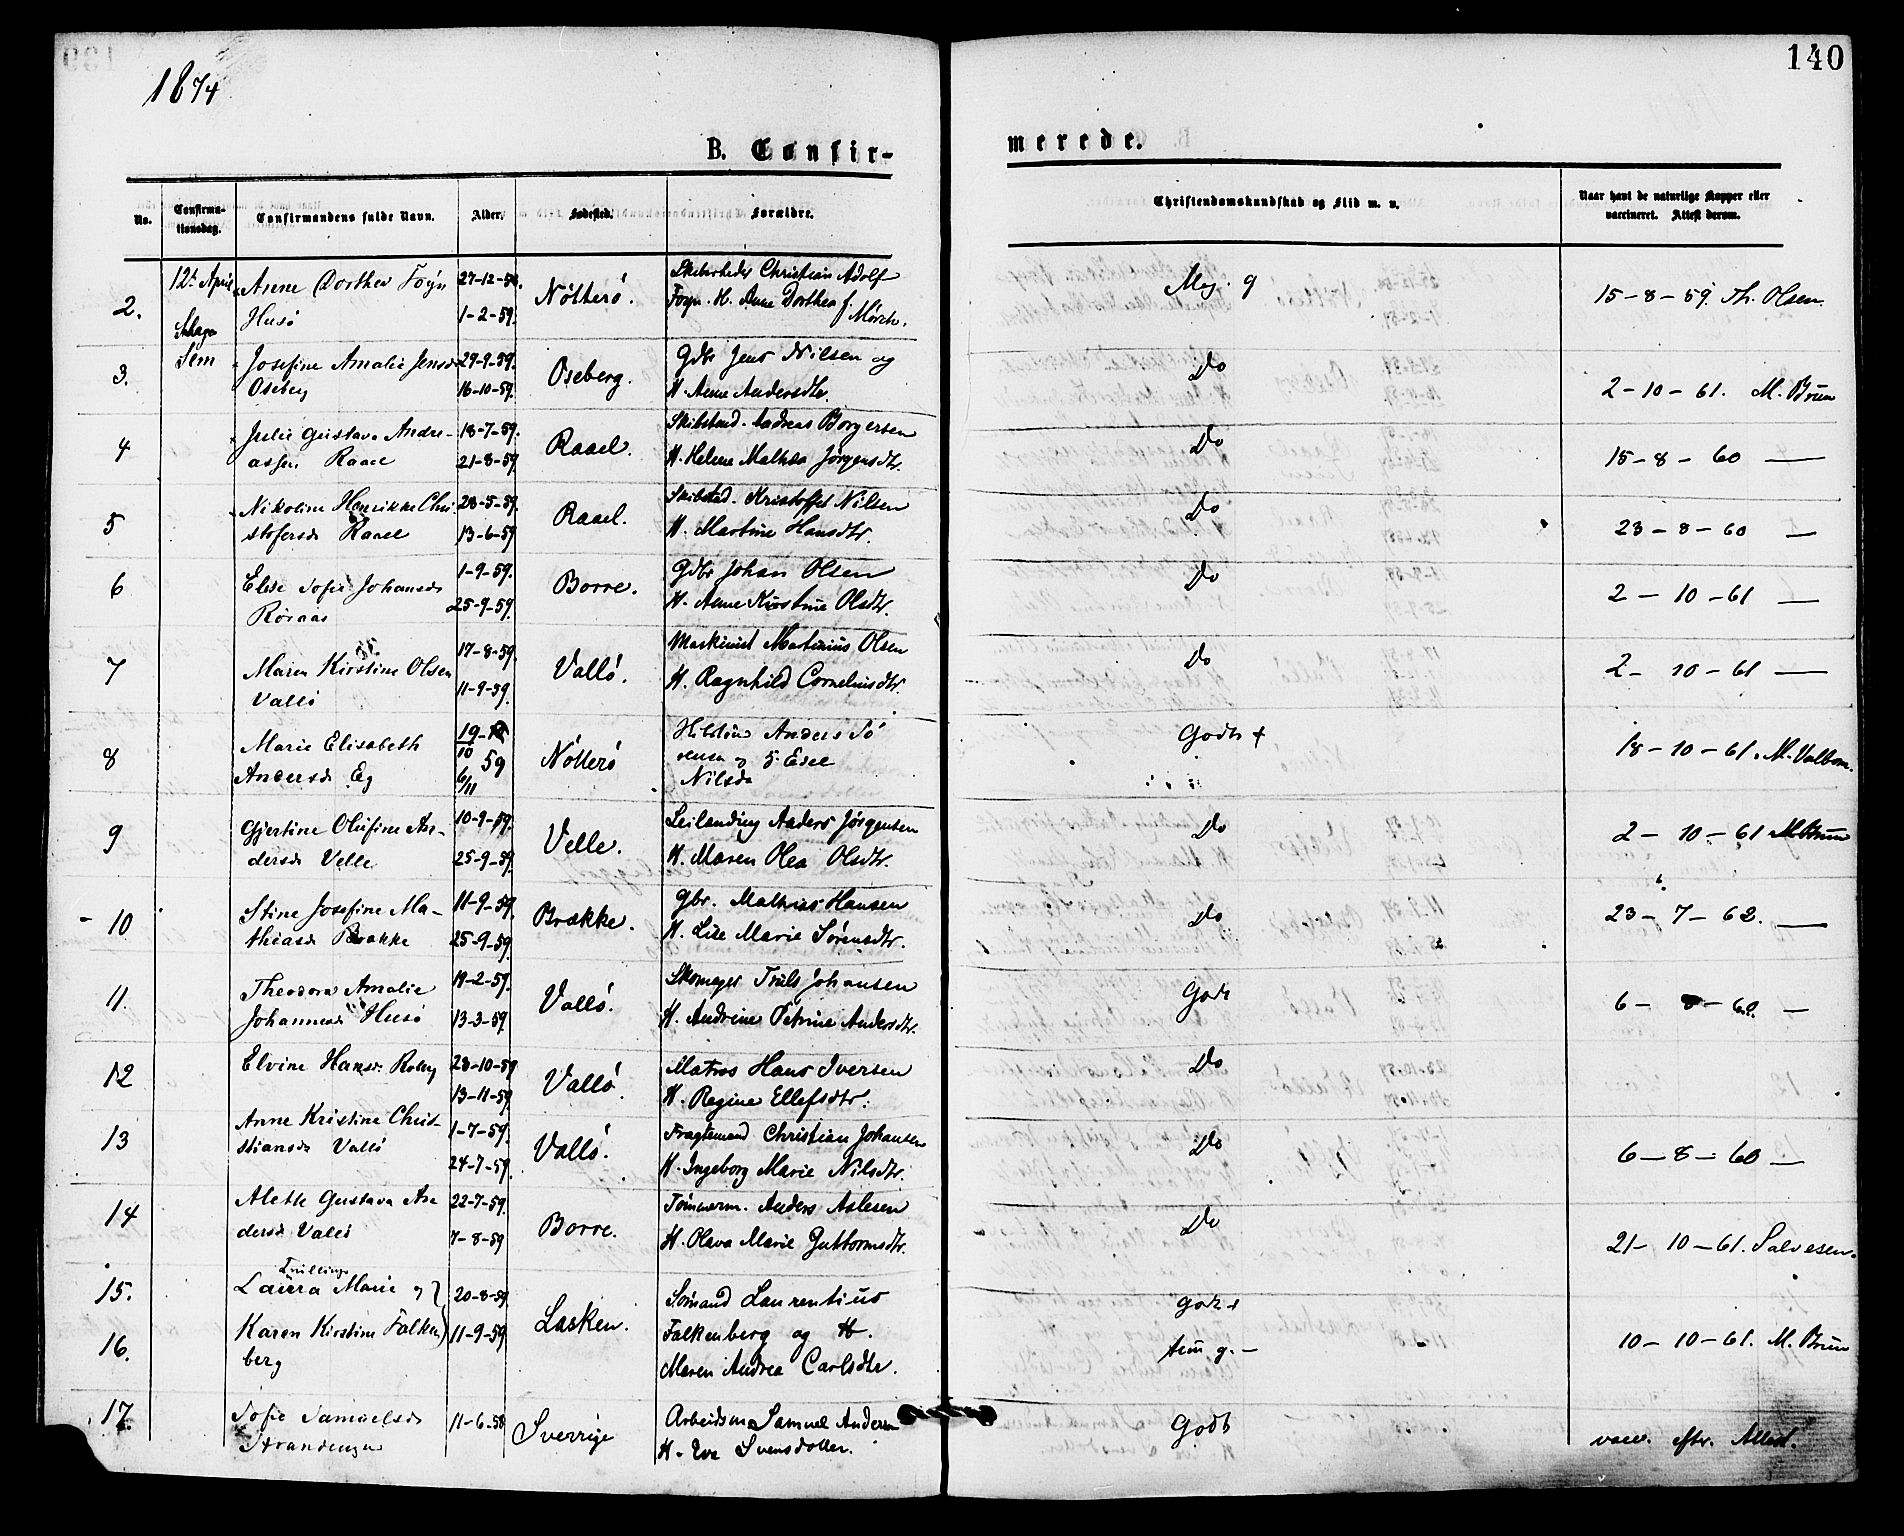 1874
140
B. Confir-
merede.
No.
Confirma-
tionsdag.
Confirmandens fulde Navn.
Alder.
Fødested.
Forældre.
Christendomskundskab og Flid m. v.
Naar havt de naturlige Kopper eller
vaccineret. Attest derom.
2. 12te April Anne Dorthea Foyn 27-12-58. Nötterö. Christian Adolf Meg. g 15-8-59. Th. Olsen.
Husö 1-2-59. Foyn. H. Anne Dorthea f. Mörch.
Sem
3. Josefine Amalie Jensd 29-9-59. Oseberg. Gdbr Jens Nilsen og Do 2-10-61. M. Bruun
Oseberg 16-10-59. H. Anne Andersdtr.
4 Julie Gustava Andre- 18-7-59. Raael. Andreas Borgersen Do 15-8-60 —
assen Raael 21-8-59. H. Helene Mathea Jörgensdtr.
5 Nikoline Henrikke Chri 28-5-59. Raael. Kristoffer Nilsen Do 23-8-60 —
stofersd Raael 13-6-59 H. Martine Hansdtr.
6 Elise Sofie Johansd 1-9-59. Borre. Gdbr Johan Olsen Do 2-10-61 —
Röraas 25-9-59. H. Anne Kirstine Olsdtr.
7 Maren Kirstine Olsen 17-8-59. Vallö. Maskinist Martinius Olsen Do 2-10-61 —
Vallö 11-9-59. H. Ragnhild Corneliusdtr.
8 Marie Elisabeth 19/10 59 Nötterö Anders Sö Godt + 18-10-61. M. Valbom.
Andersd Eg 6/11 rensen og
Nilsd
9 Gjertine Olufine An- 10-9-59. Velle. Leilending Anders Jörgensen Do 2-10-61 M. Bruun
dersd Velle 25-9-59. H. Maren Olea Olsdtr.
10 Stine Josefine Ma- 11-9-59. Brække. Gbr. Mathias Hansen Do 23-7-62. —
thiasd Brække 25-9-59. H. Lise Marie Sörensdtr.
11. Theodora Amalie 19-2-59. Vallö. Skomager Truls Johansen Godt 6-8-60. —
Johannesd Husö 13-3-59. H. Andrine Petrine Andersdtr.
12 Elvine Hansd. 28-10-59 Vallö. Matros Hans Iversen Do
13-11-59. H. Regine Ellefsdtr.
13 Anne Kristine Chris- 1-7-59. Vallö. Fragtemand Christian Johansen Do 6-8-60 —
stiansd Vallö 24-7-59. H. Ingeborg Marie Nilsdtr.
14 Alette Gustava An 22-7-59. Borre. Tömmerm. Anders Aslesen Do 21-10-61. Salvesen.
dersd Vallö 7-8-59 H. Olava Marie Guttormsdtr.
Tvillinger
15. Laura Marie og } 20-8-59 Lasken. Sömand Laurentius godt +
16. Karen Kirstine Falken 11-9-59 Falkenberg og H. tem g. — 10-10-61. M. Bruun
berg Maren Andrea Carlsdtr.
17. Sofie Samuelsd 11-6-58 Sverrige Arbeidsm Samuel Andersen Godt vacc. eftr. Attest.
H. Eva Svensdotter.